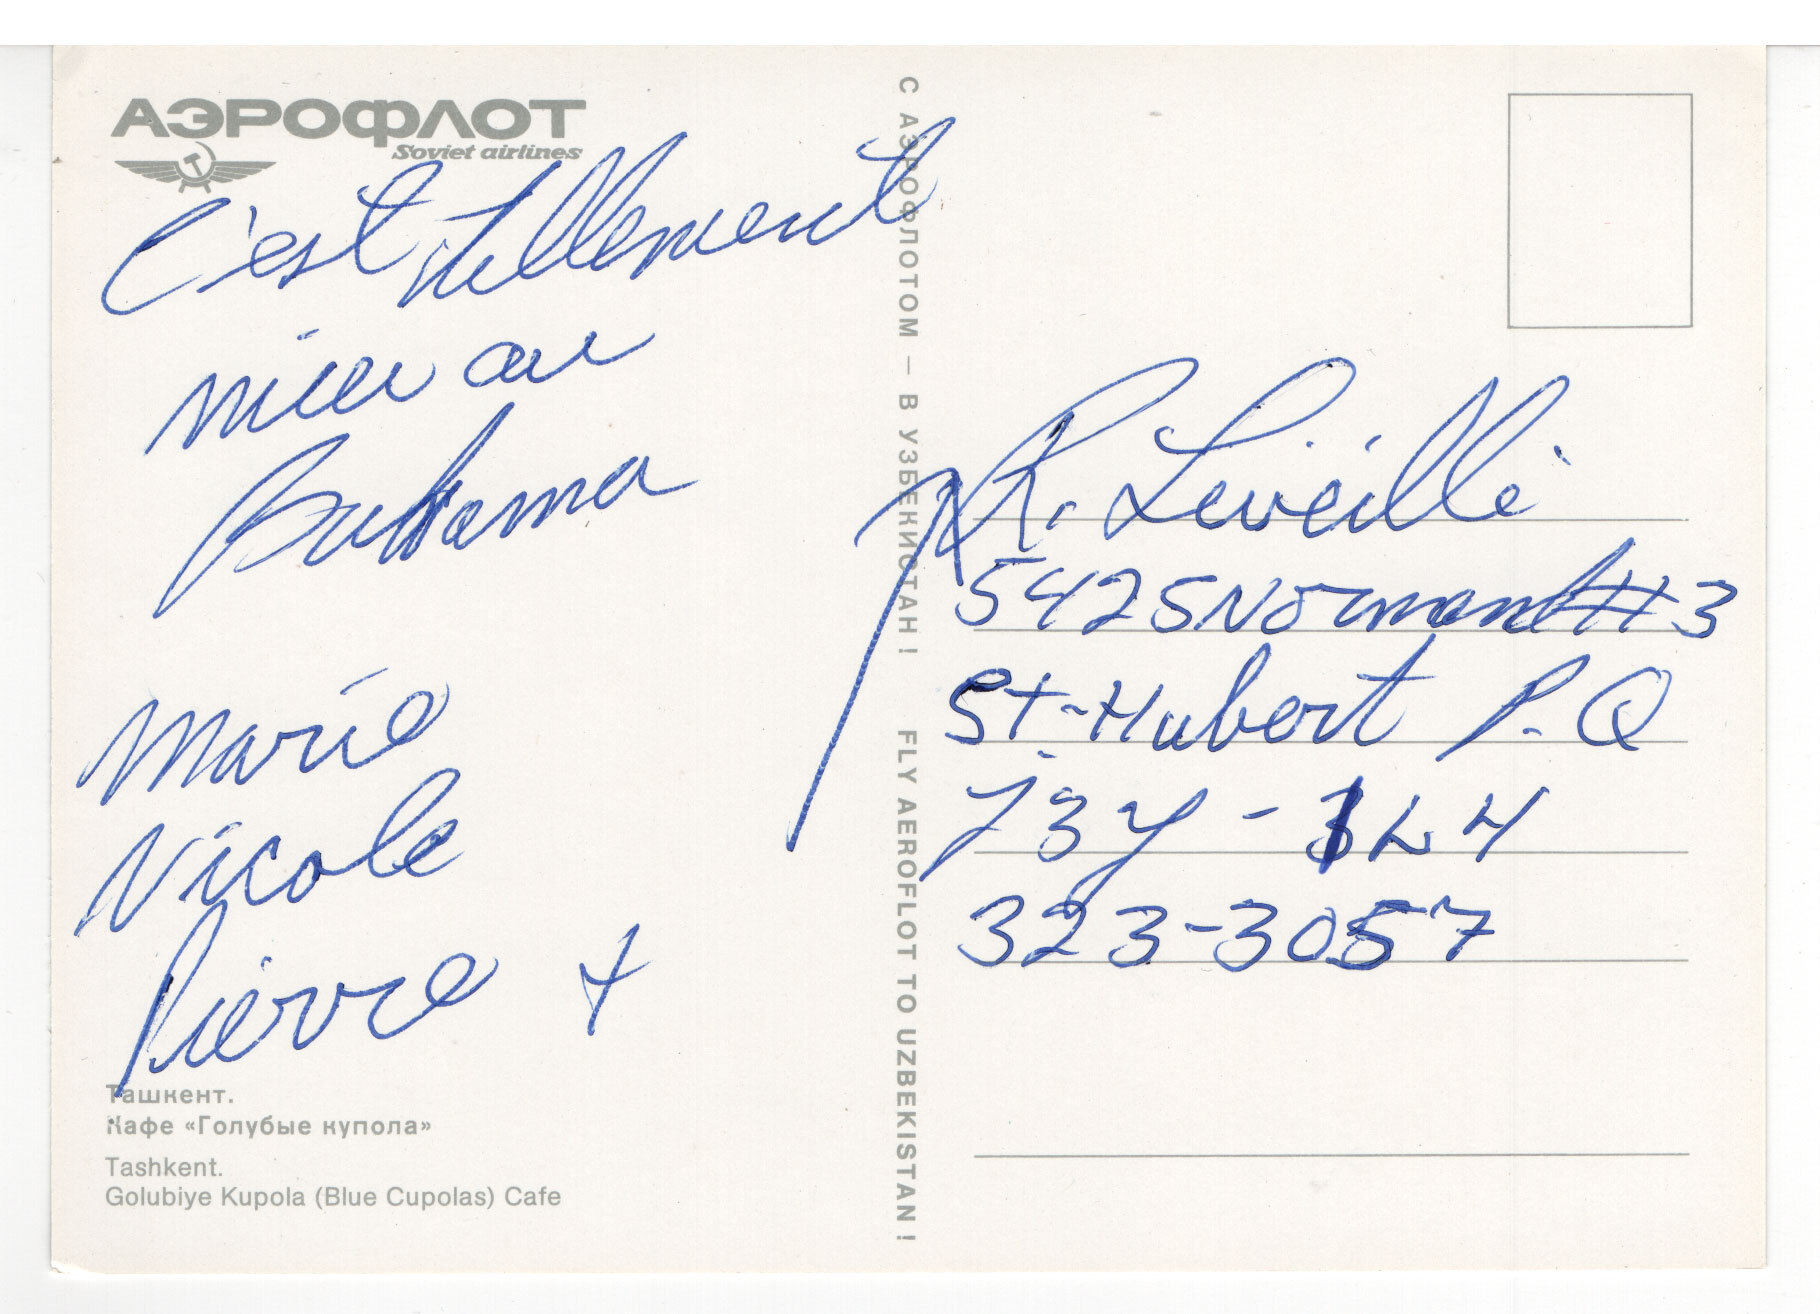 АЭРОФЛОТ
Soviet airlines
C'est tellement
mieu au
Bahama
Marie
Nicole
Pierre +
Ташкент.
Кафе «Голубые купола»
Tashkent.
Golubiye Kupola (Blue Cupolas) Cafe
С АЭРОФЛОТОМ – В УЗБЕКИСТАН! FLY AEROFLOT TO UZBEKISTAN!
R. Léveillé
5425 Normand #3
St-Hubert P.Q
J3Y-
323-3057